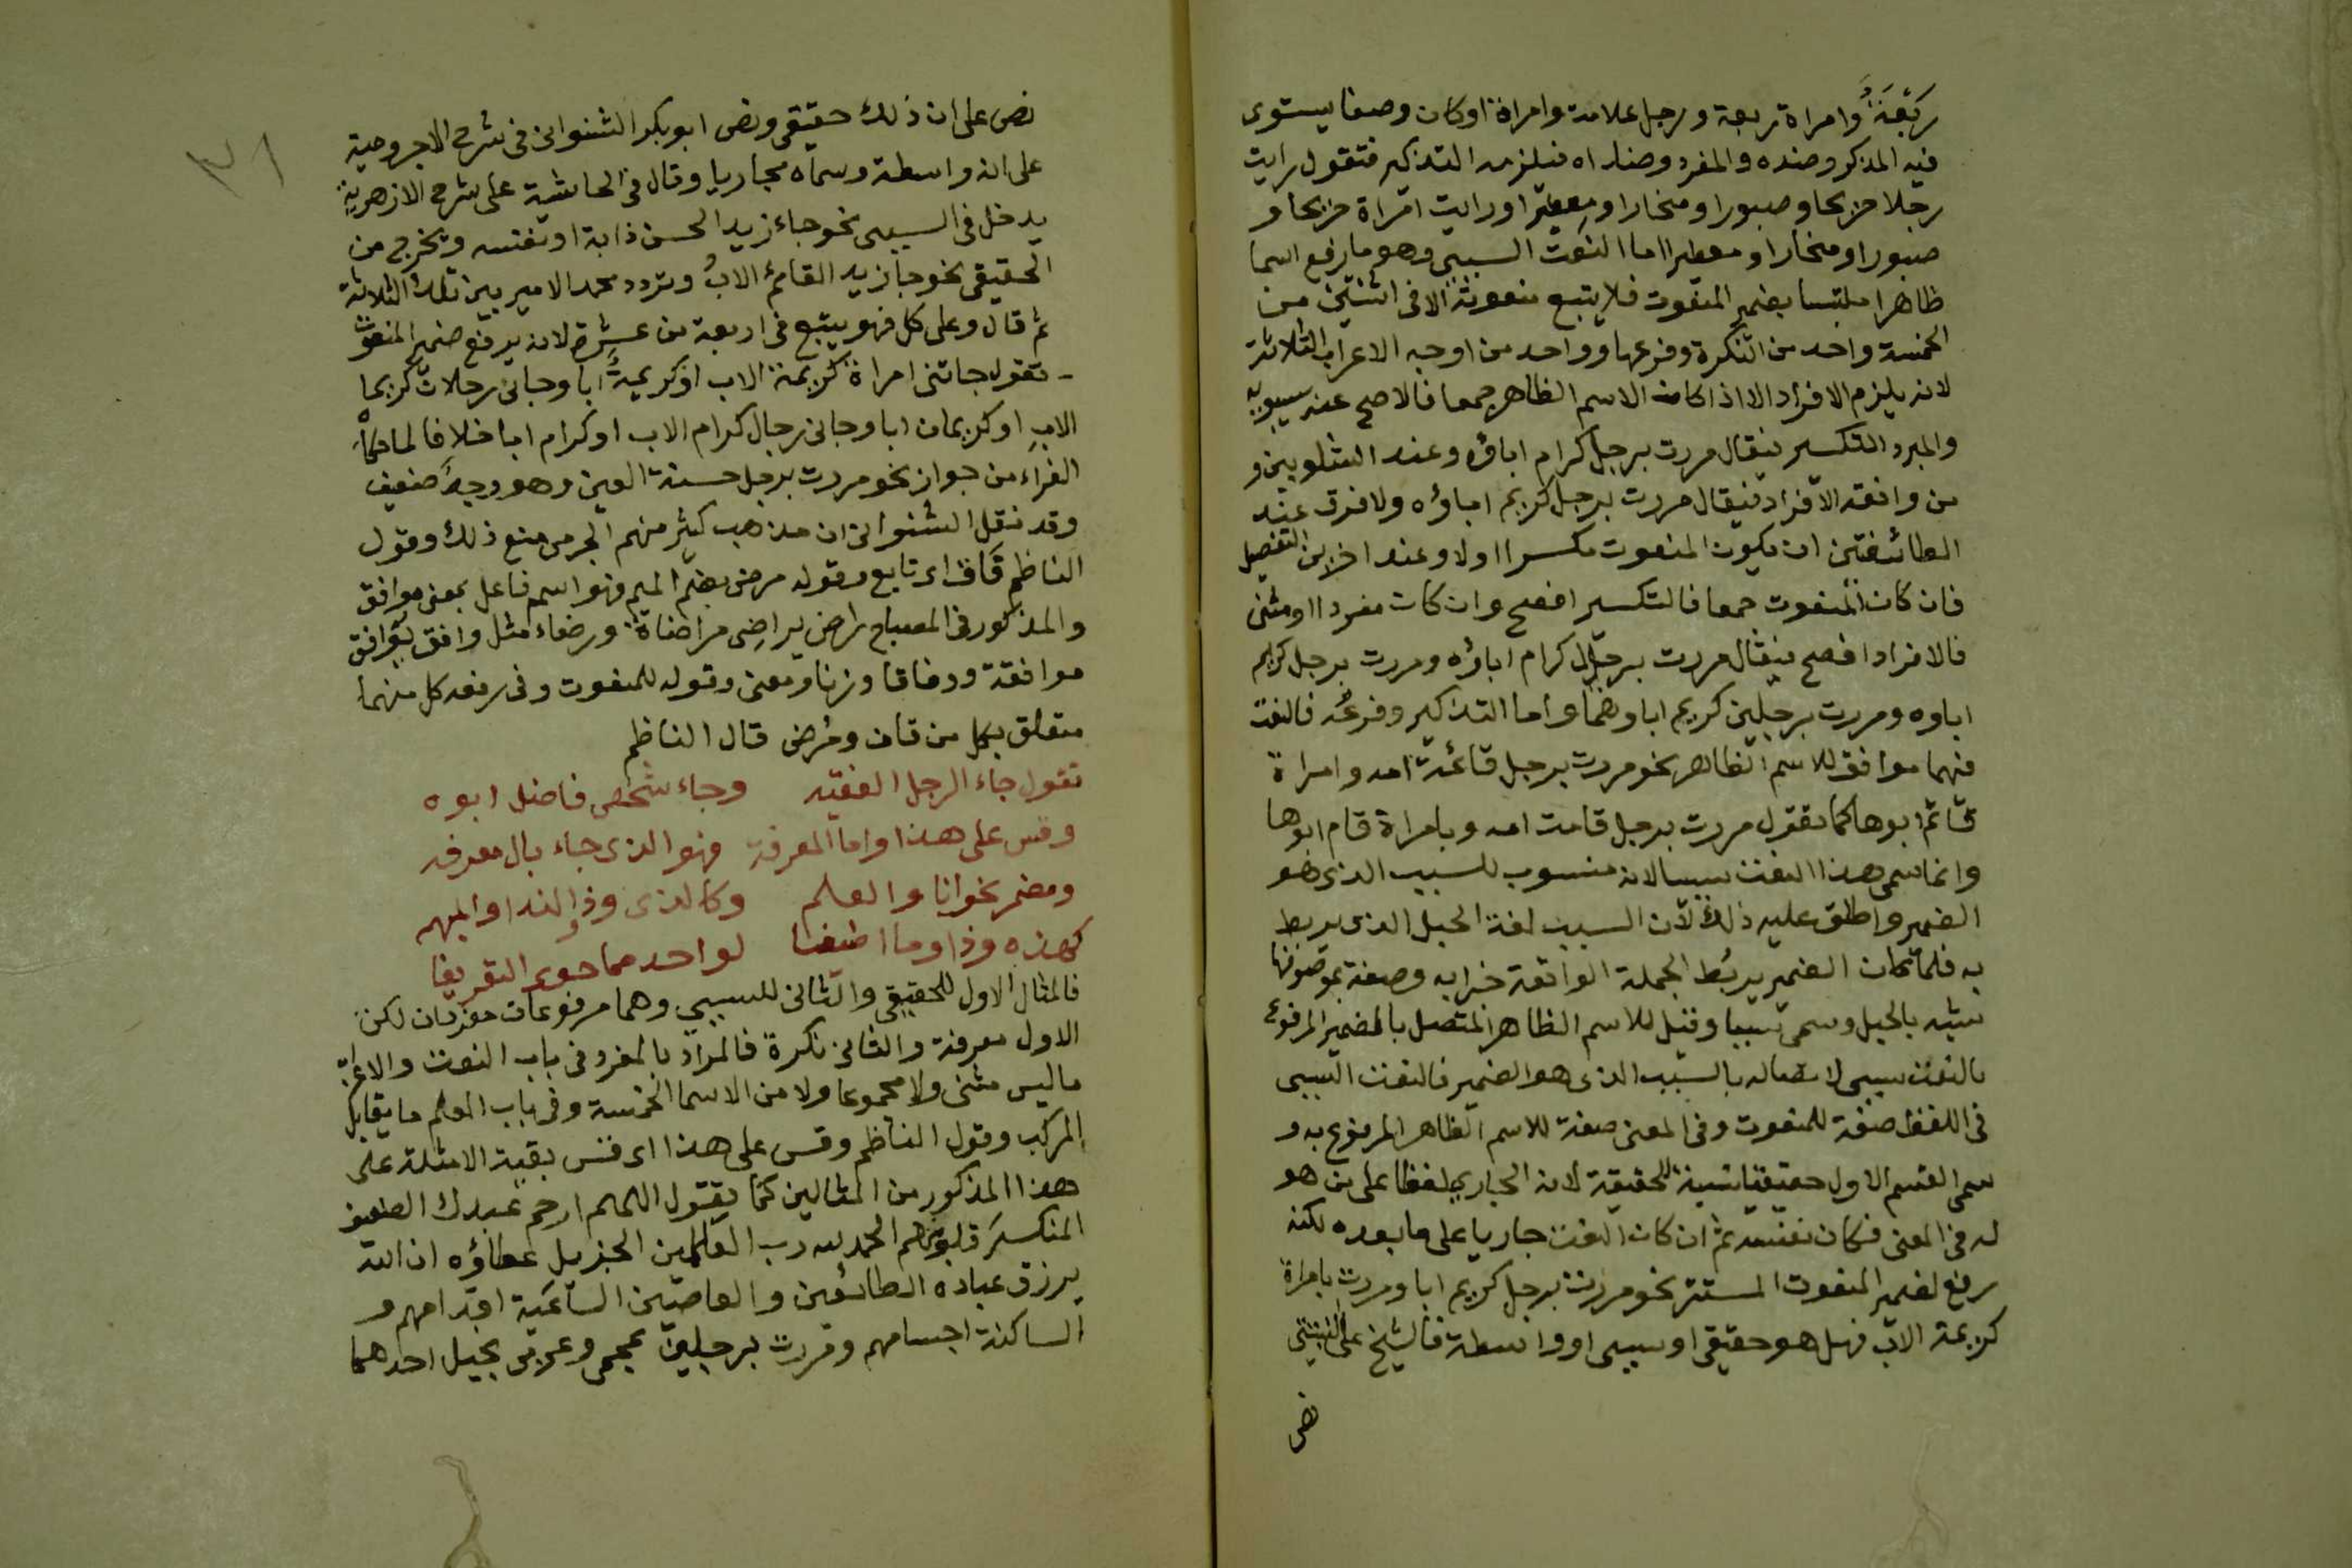 رَبْعَةٌ وامراة ربعة ورجل علامة وامراة اوكان وصفا يستوى
فيه المذكر وضده والمفرد وضداه فيلزمه التذكير فتقول رايت
رجلا جريحا وصبورا ومنحارا ومعطيرا ورايت امراة جريحا و
صبورا ومنحارا ومعطيرا اما النعت السببى وهو ما رفع اسما
ظاهرا ملتبسا بضمير المنعوت فلا يتبع منعوته الا فى اثنين من
الخمسة واحد من التنكرة وفرعها وواحد من اوجه الاعراب الثلاثة
لانه يلزم الافراد الا اذا كان الاسم الظاهر جمعا فالاصح عند سيبويه
والمبرد التكسير فيقال مررت برجل كرام اباؤه وعند الشلوبين و
من وافقه الافراد فيقال مررت برجل كريم اباؤه ولا فرق عند
الطائفتين ان يكون المنعوت مكسرا اولا وعند اخرين التفصيل
فان كان المنعوت جمعا فالتكسير افصح وان كان مفردا او مثنى
فالافراد افصح فيقال مررت برجال كرام اباؤه ومررت برجل كريم
اباوه ومررت برجلين كريم اباوهما واما التذكير وفرعه فالنعت
فيهما موافق للاسم الظاهر نحو مررت برجل قائمة امه وامراة
قائم ابوها كما تقول مررت برجل قامت امه وبامراة قام ابوها
وانما سمى هذا النعت سببيا لانه منسوب للسبب الذى هو
الضمير واطلق عليه ذلك لان السبب لغة الحبل الذى يربط
به فلما كان الضمير يربط الجملة الواقعة خبرا به وصفة بموصوفها
شبه بالحبل وسمى سببا وقيل للاسم الظاهر المتصل بالضمير المرفوع
بالنعت سببى لاتصاله بالسبب الذى هو الضمير فالنعت السببى
فى اللفظ صفة للمنعوت وفى المعنى صفة للاسم الظاهر المرفوع به و
سمى القسم الاول حقيقيا نسبة للحقيقة لانه الجارى لفظا على من هو
له فى المعنى فكان نفسه ثم ان كان النعت جاريا على ما بعده لكنه
رفع لضمير المنعوت المستتر نحو مررت برجل كريم ابا ومررت بامراة
كريمة الاب فهل هو حقيقى او سببى او واسطة فالشيخ على
نص
٣١
نص على ان ذلك حقيقى ونص ابو بكر الشنوانى فى شرح الاجرومية
على انه واسطة وسماه مجازيا وقال فى الحاشية على شرح الازهرية
يدخل فى السببى نحو جاء زيد الحسن ذابة او نفسه ويخرج من
الحقيقى نحو جا زيد القائم الاب وتردد محمد الامير بين تلك الثلاثة
ثم قال وعلى كل فهو يتبع فى اربعة من عشرة لانه يرفع ضمير المنعوت
تقول جاتنى امراة كريمة الاب او كريمة ابا وجانى رجلان كريما
الاب او كريمان ابا وجانى رجال كرام الاب او كرام ابا خلافا لما حكاه
الفراء من جواز نحو مررت برجل حسنة العين وهو وجه ضعيف
وقد نقل الشنوانى ان مذهب كثير منهم الجرمى منع ذلك وقول
الناظم قاف اى تابع وقوله مرض بضم الميم فهو اسم فاعل بمعنى موافق
والمذكور فى المصباح راضى يراضى مراضاة ورضاء مثل وافق يوافق
موافقة ووفاقا وزنا ومعنى وقوله للمنعوت وفى رفعه كل منهما
متعلق بكل من قاف ومُرض قال الناظم
تقول جاء الرجل الفقيه وجاء شخص فاضل ابوه
وقس على هذا واما المعرفة فهو الذى جاء بال معرفه
ومضمر نحو انا والعلم وكالذى وذو النداء والمبهم
كهذه وذا وما اضيفا لواحد مما حوى التعريفا
فالمثال الاول للحقيقى والثانى للسببى وهما مرفوعان مفردان لكن
الاول معرفة والثانى نكرة فالمراد بالمفرد فى باب النعت والاعراب
ما ليس مثنى ولا مجموعا ولا من الاسما الخمسة وفى باب العلم ما يقابل
المركب وقول الناظم وقس على هذا اى قس بقية الامثلة على
هذا المذكور من المثالين كما يقول اللهم ارحم عبدك الضعيف
المنكسر قلوبهم الحمد لله رب العالمين الجزيل عطاؤه ان الله
يرزق عباده الطائعين والعاصين الساعية اقدامهم و
الساكنة اجسامهم ومررت برجلين عجمى وعربى بخيل احدهما